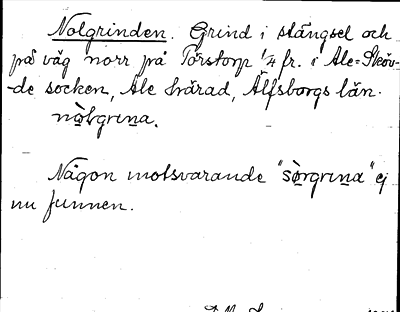 Nolgrinden. Grind i stängsel och
på väg norr på Torstorp 1/4 fr. i Ale-Sköv-
de socken, Ale härad, Älfsborgs län.
nòlgrina.
Någon motsvarande "sòrgrina" ej
nu funnen.